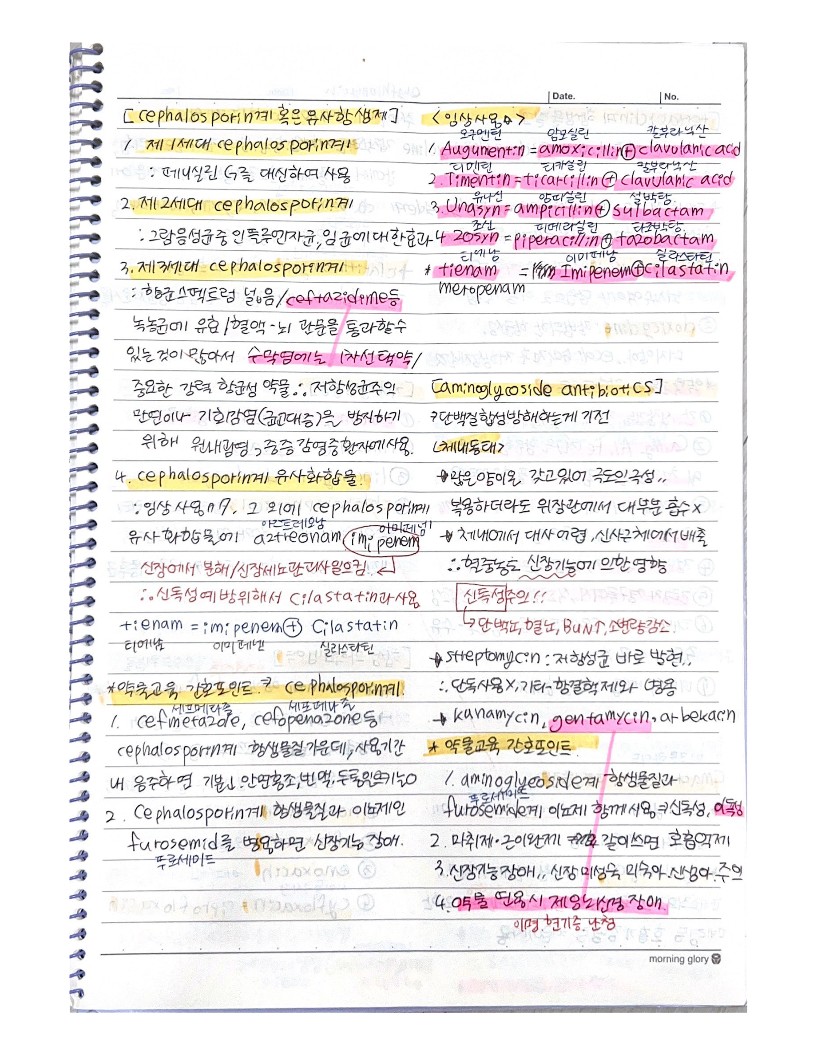 Date.
No.
[cephalosporin계 혹은 유사항생제]
1. 제1세대 cephalosporin계
: 페니실린 G를 대신하여 사용
2. 제2세대 cephalosporin계
: 그람음성균중 인플루엔자균, 임균에 대한 효과
3. 제3세대 cephalosporin계
: 항균스펙트럼 넓음/ceftazidime등
녹농균에 유효/혈액-뇌 관문을 통과할수
있는것이 많아서 수막염에는 1차선택약/
중요한 강력 항균성 약물∴저항성균주의
만연이나 기회감염(균교대증)을 방지하기
위해 원내감염, 중증 감염증환자에 사용.
4. cephalosporin계 유사화합물
: 임상사용 그 외에 cephalosporin계
아즈트레오남 이미페넴
유사 화합물에 aztreonam imipenem
신장에서 분해/신장세뇨관괴사일으킴
∴신독성예방위해서 cilastatin과 사용
tienam = imipenem + Cilastatin
티에남 이미페넴 실라스타틴
*약물교육 간호포인트 cephalosporin계
1. cefmetazole, cefopenazone등
cephalosporin계 항생물질 가운데, 사용기간
내 음주하면 안면홍조, 빈맥, 두통
2. Cephalosporin계 항생물질과 이뇨제인
furosemid를 병용하면 신장기능 장애.
푸로세미드
<임상사용>
오구멘틴 암모실린 칼부라닉산
1. Augumentin = amoxicillin + clavulanic acid
티멘틴 티카실린 칼부라닉산
2. Timentin = ticarcillin + clavulanic acid
유나신 암피실린 설박탐
3. Unasyn = ampicillin + sulbactam
조신 피페라실린 타조박탐
4 Zosyn = piperacillin + tazobactam
티에남 이미페넴 실라스타틴
* tienam = Imipenem + cilastatin
meropenam
[aminoglycoside antibiotics]
단백질합성방해하는게 기전
<체내동태>
→많은 양이온 갖고있어 극도의 극성,,
복용하더라도 위장관에서 대부분 흡수x
→체내에서 대사 어렵, 신사구체에서 배출
∴혈중농도 신장기능에 의한 영향
신독성주의!!
→단백뇨, 혈뇨, BUN↑, 소변량감소
→streptomycin: 저항성균 바로 발현,,
∴단독사용X, 기타 항결핵제와 병용
→kanamycin, gentamycin, arbekacin
* 약물교육 간호포인트
1. aminoglycoside계 항생물질과
푸로세미드
furosemide계 이뇨제 함께사용→신독성, 이독성
2. 마취제·근이완제 같이쓰면 호흡억제
3. 신장기능장애,, 신장 미성숙 미숙아·신생아 주의
4. 약물 병용시 제8뇌신경장애
이명, 현기증, 난청
morning glory